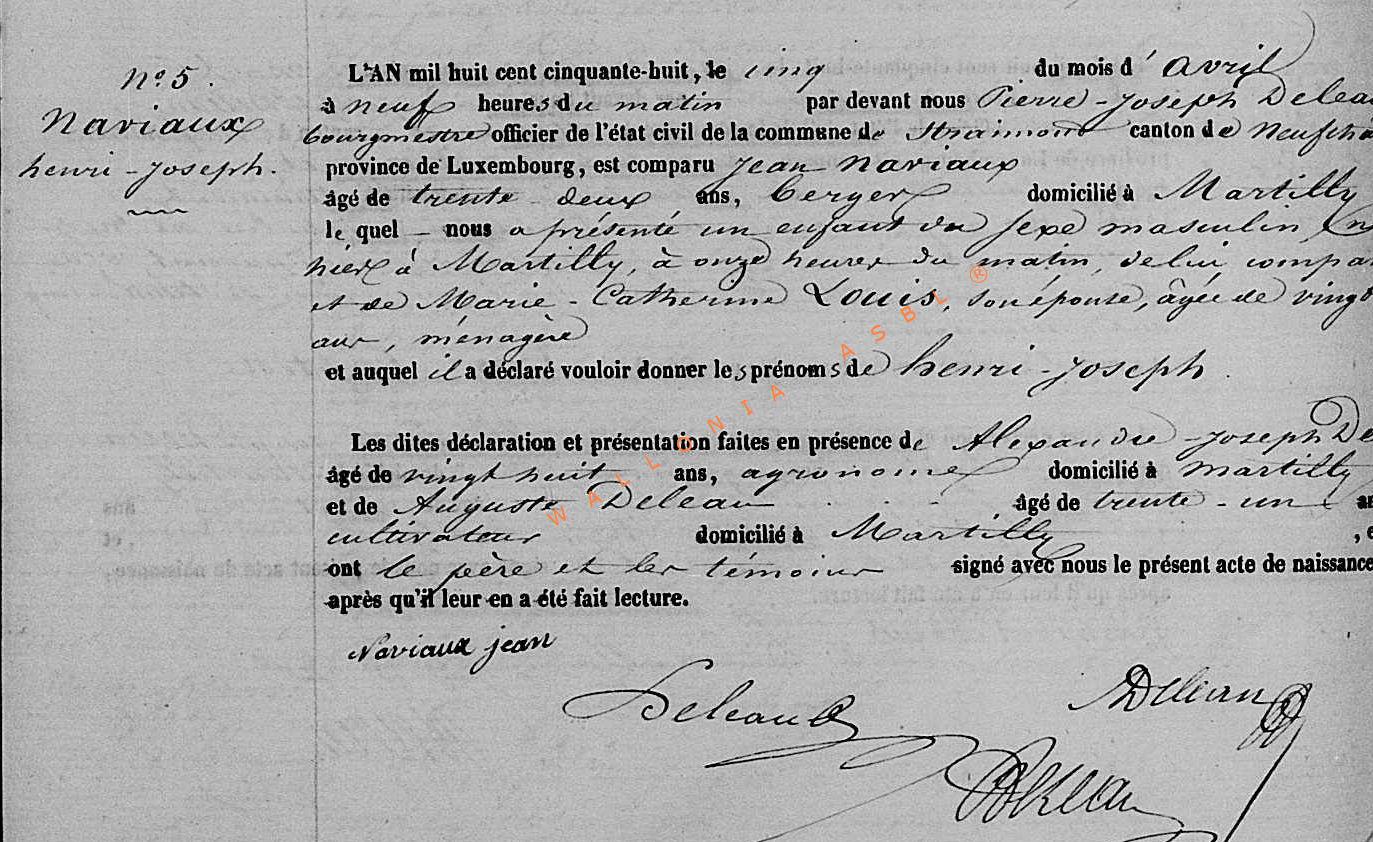 N° 5.
Naviaux
henri-Joseph.
L'AN mil huit cent cinquante-huit, le cinq du mois d' avril
à neuf heures du matin par devant nous Pierre-Joseph Deleau
bourgmestre officier de l'état civil de la commune de Straimont canton de Neufchâ
province de Luxembourg, est comparu Jean Naviaux
âgé de trente deux ans, berger domicilié à Martilly
le quel nous a présenté un enfant du sexe masculin, né
hier à Martilly, à onze heures du matin, de lui compa
et de Marie-Catherine Louis, son épouse, âgée de vingt
ans, ménagère
et auquel il a déclaré vouloir donner les prénoms de henri-Joseph.
Les dites déclaration et présentation faites en présence de Alexandre-Joseph De
âgé de vingt huit ans, agronome domicilié à Martilly
et de Auguste Deleau âgé de trente-un an
cultivateur domicilié à Martilly , e
ont le père et les témoins signé avec nous le présent acte de naissance
après qu'il leur en a été fait lecture.
Naviaux jean
Deleau
ADeleau
Deleau
WALLONIA ASBL ®